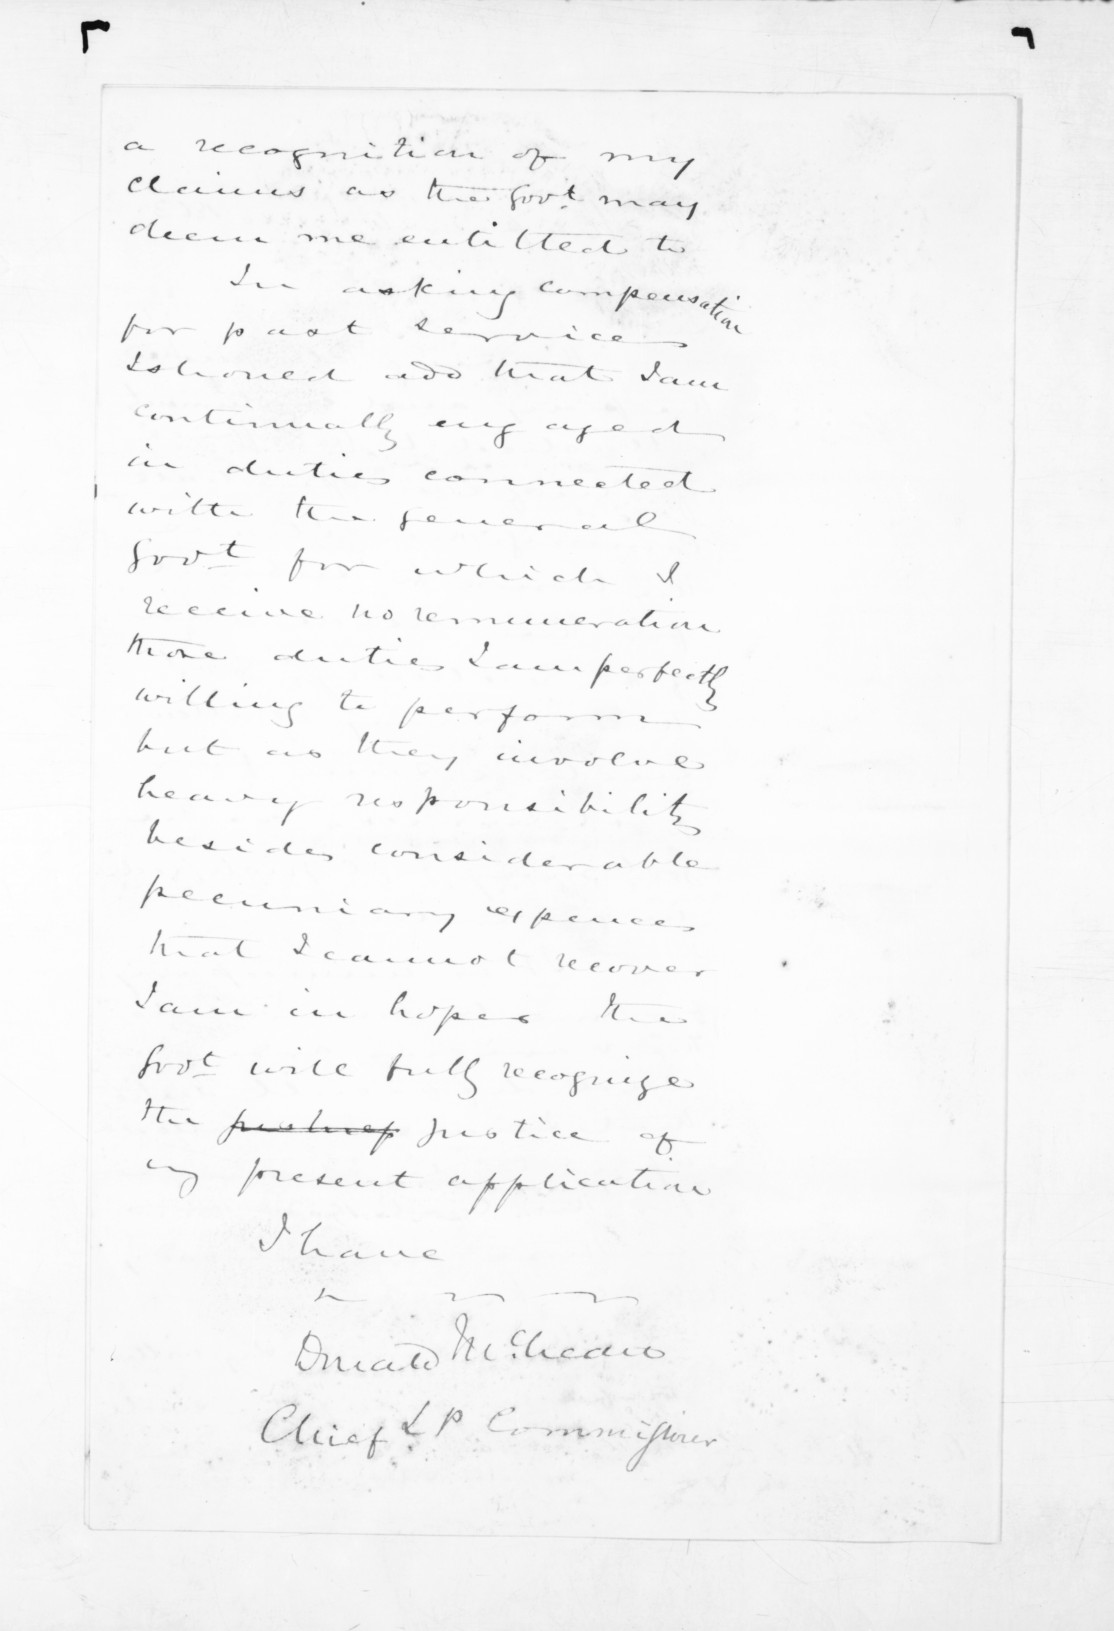 a recognition of my
claims as the Govt. may
deem me entitled to
In asking compensation
for past services
I should add that I am
continually engaged
in duties connected
with the general
Govt for which I
receive no remuneration
those duties I am perfectly
willing to perform
but as they involve
heavy responsibility
besides considerable
pecuniary expences
that I cannot recover
I am in hopes the
Govt will fully recognize
the justice of
my present application
I have
Donald McLean
Chief L P Commissioner